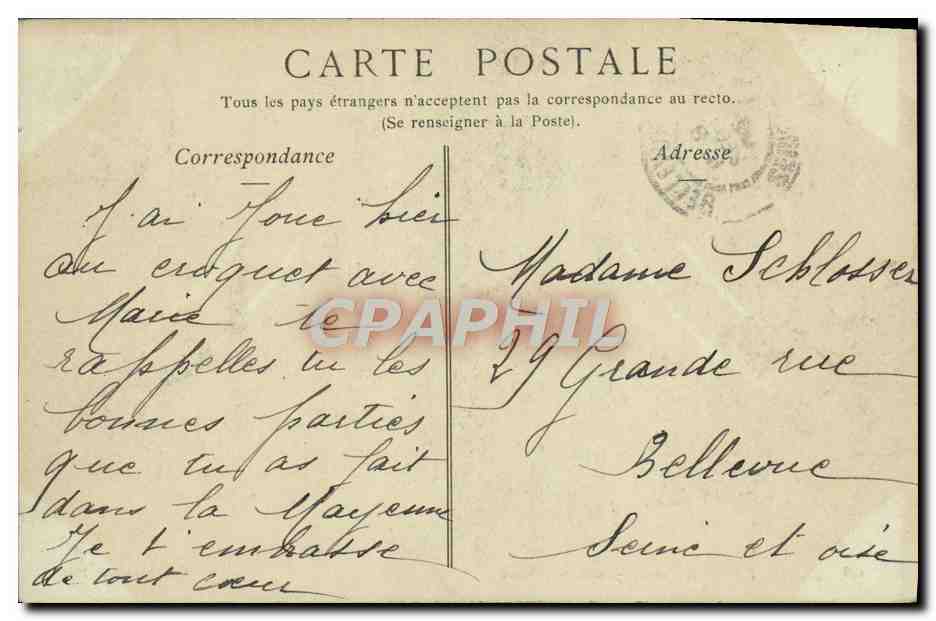 CARTE POSTALE
Tous les pays étrangers n'acceptent pas la correspondance au recto.
(Se renseigner à la Poste).
Correspondance
Adresse
J'ai Joué hier
au croquet avec
Marie te
rappelles tu les
bonnes parties
que tu as fait
dans la Mayenne
Je t'embrasse
de tout cœur
Madame Schlosser
29 Grande rue
Bellevue
Seine et oise
CPAPHIL